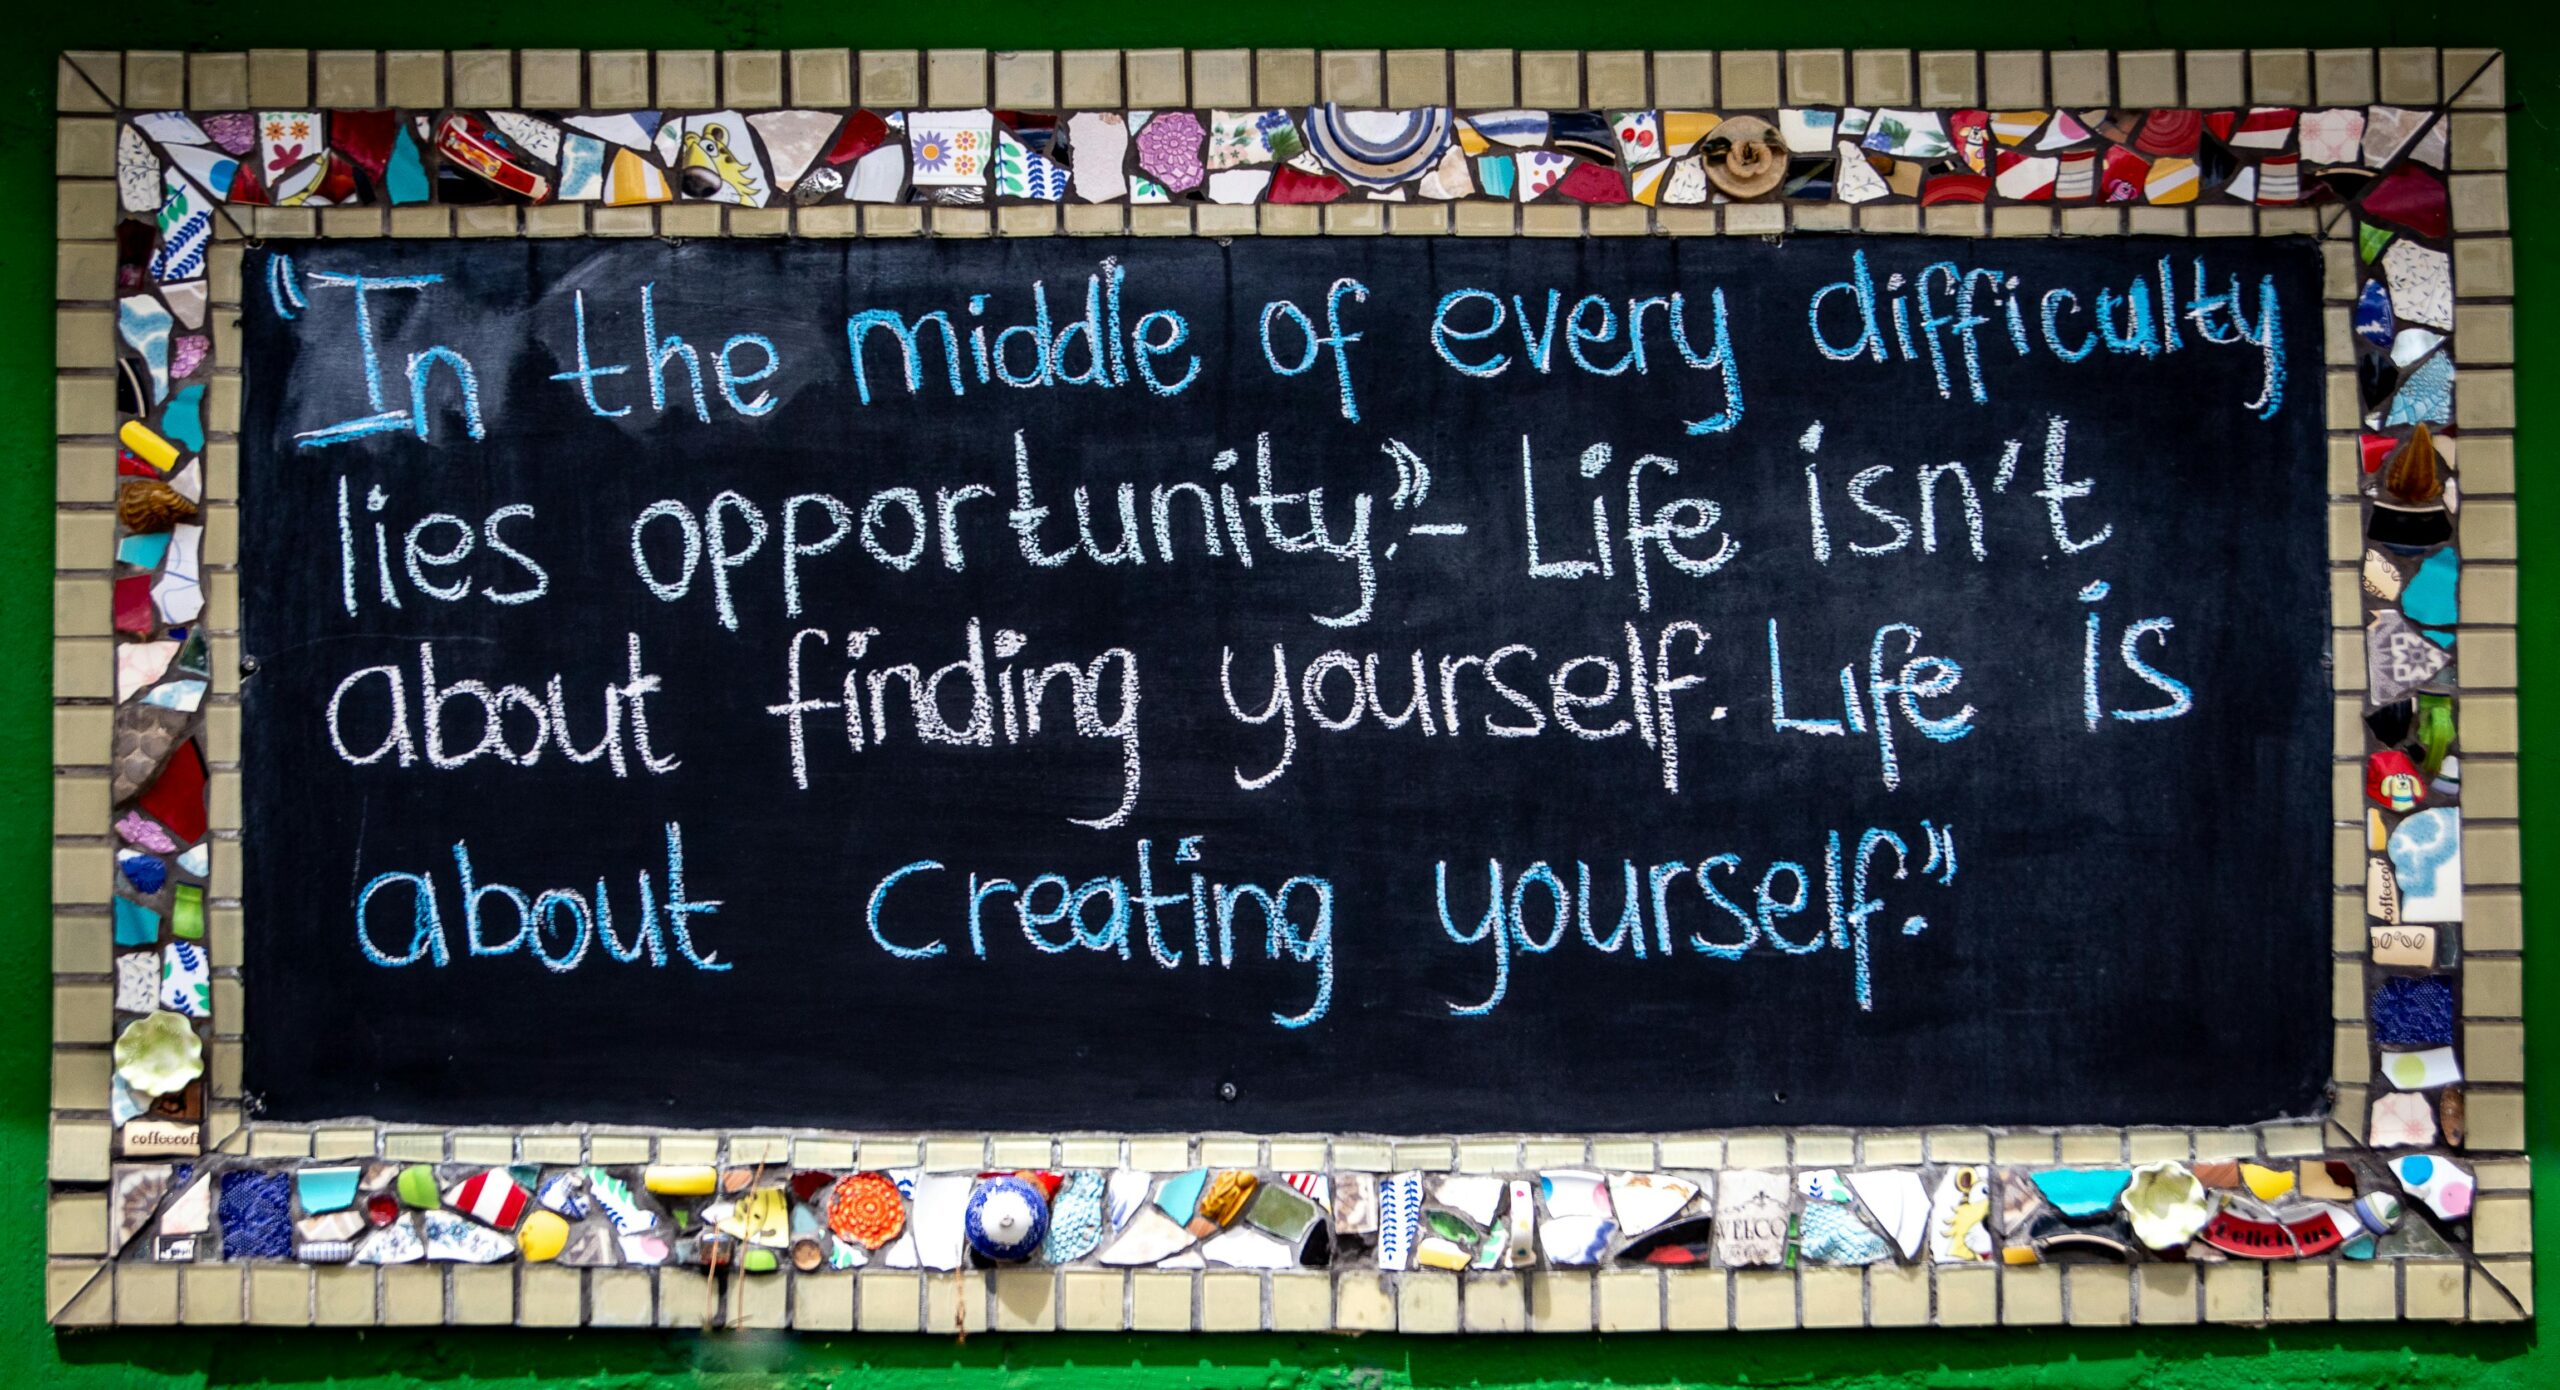 "In the middle of every difficulty
lies opportunity."- Life isn't
about finding yourself. Life is
about creating yourself."
coffeecof
coffeecof
WELCO
Delicious